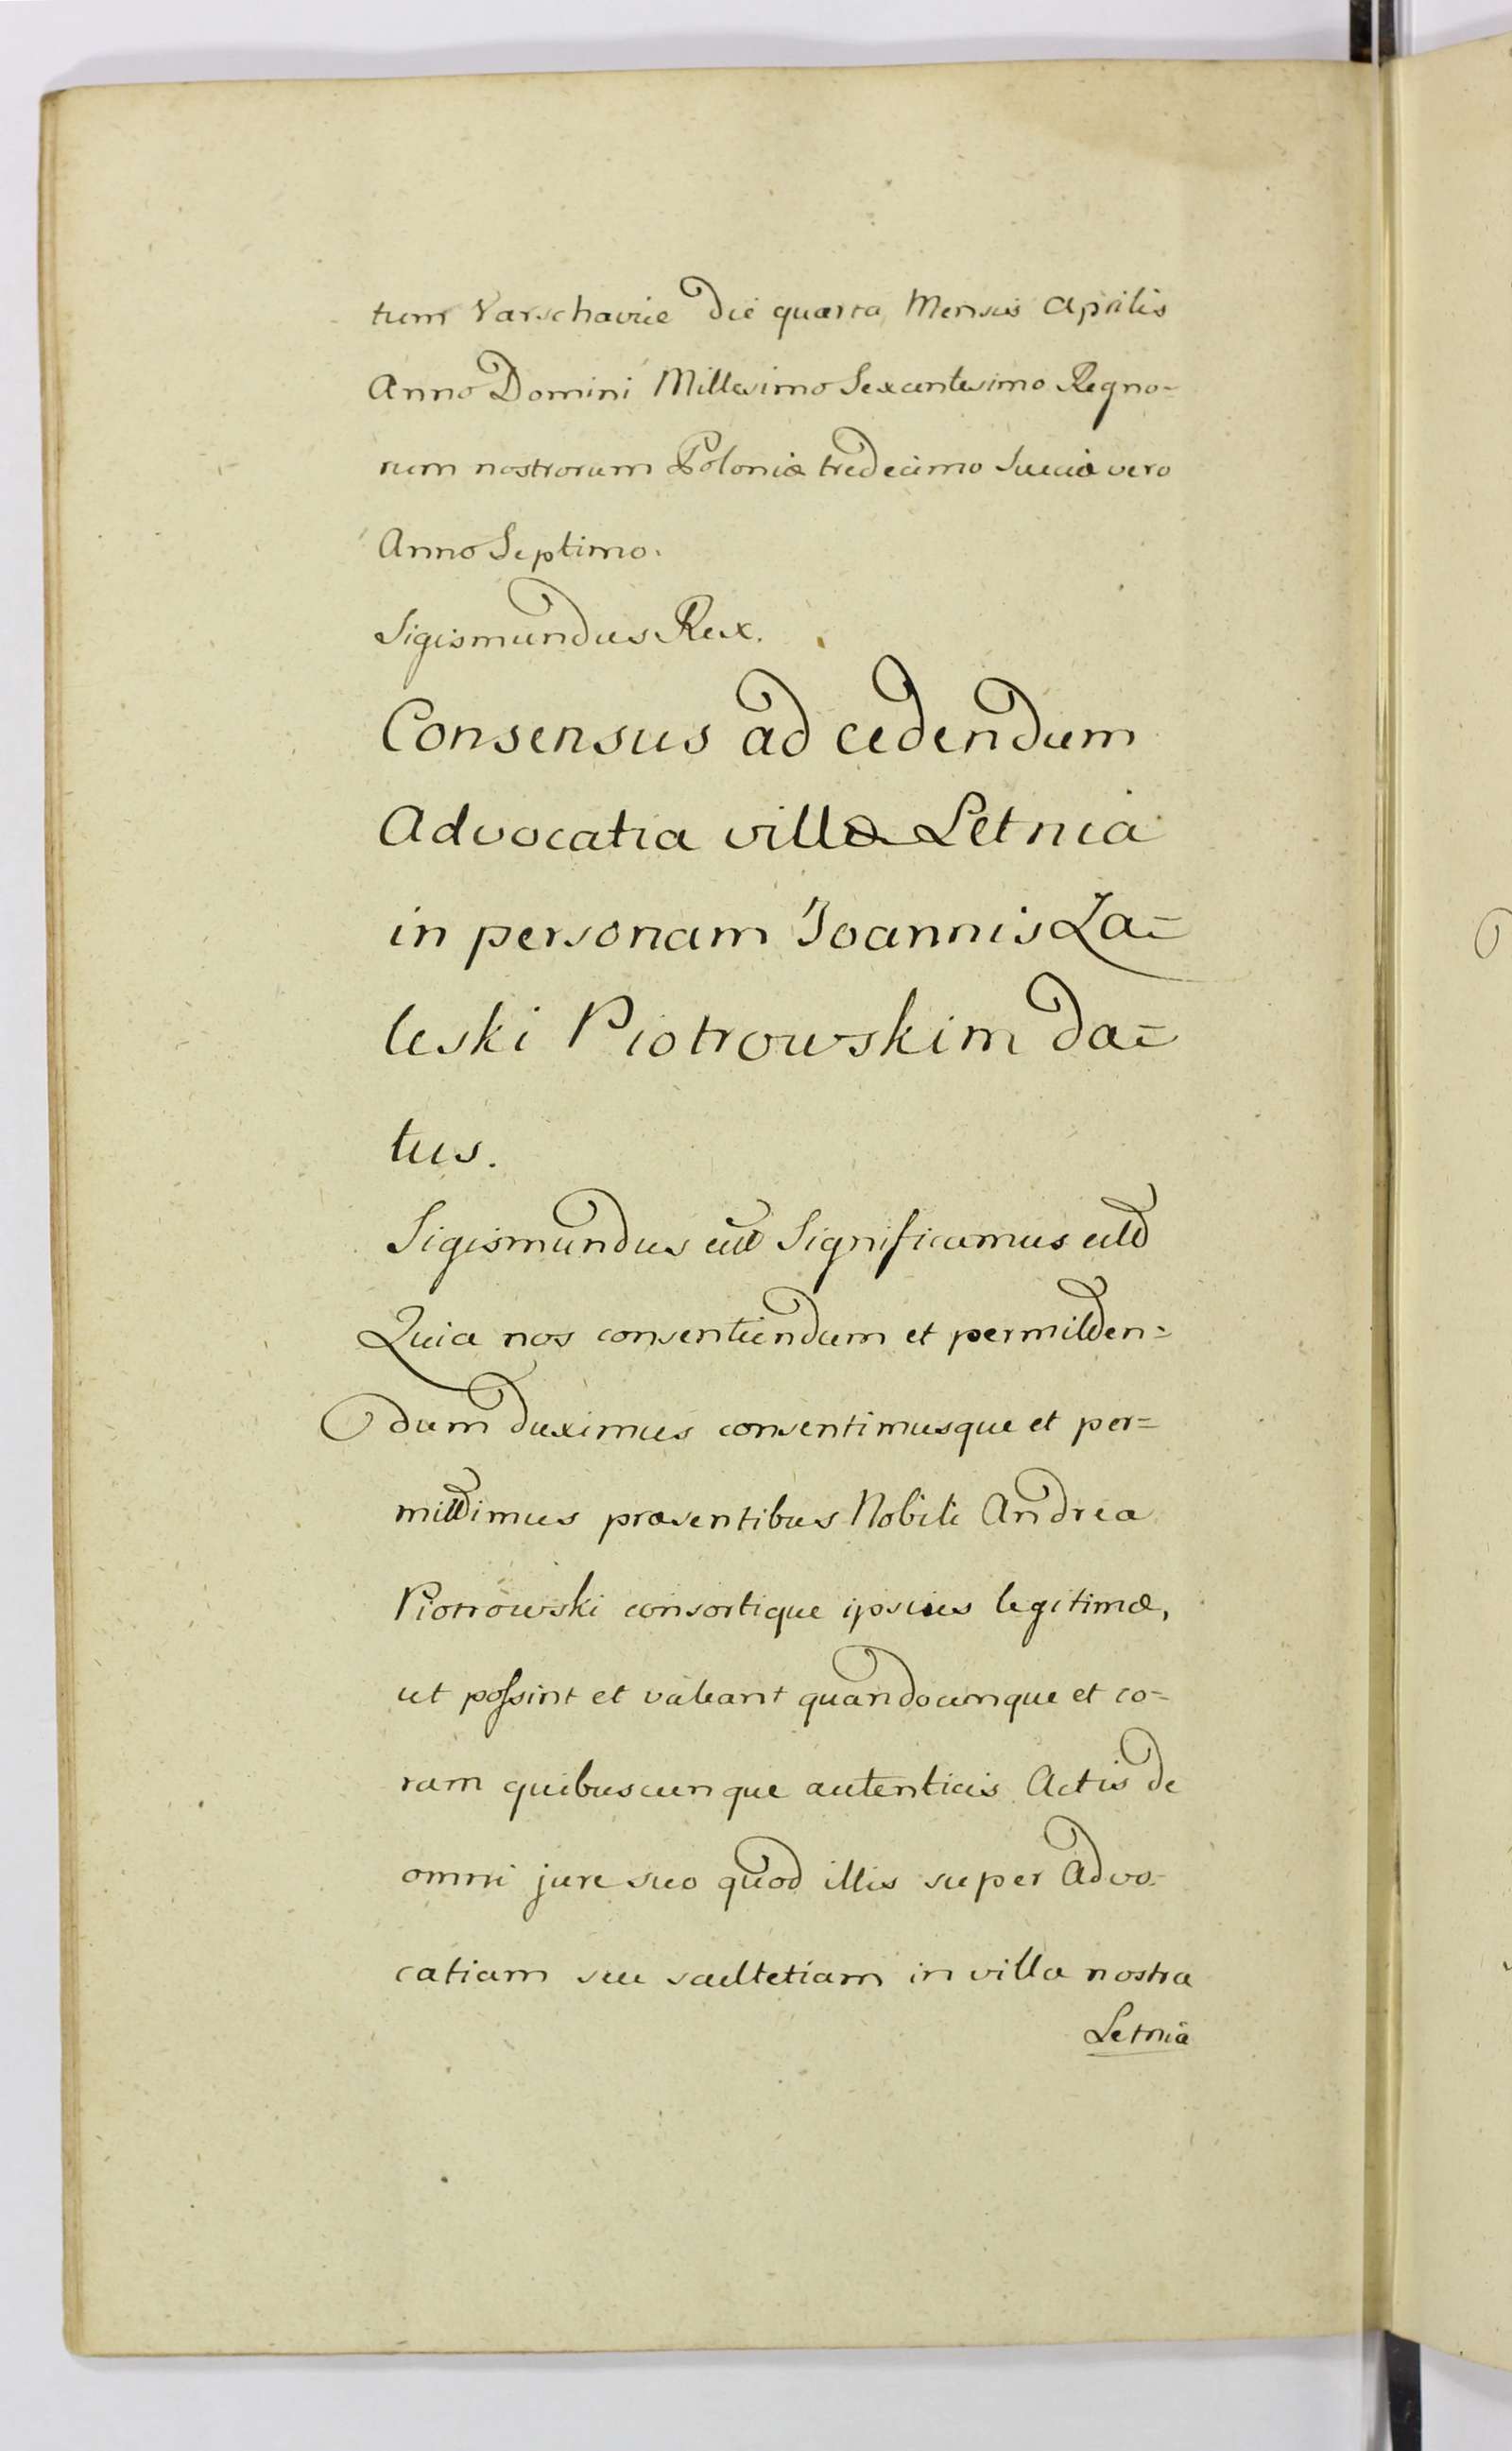 tum Varschaviæ die quarta Mensis Aprilis
Anno Domini Millesimo Sexcentesimo Regno-
rum nostrorum Poloniæ tredecimo Sueciæ vero
Anno Septimo.
Sigismundus Rex.
Consensus ad cedendum
Advocatia villæ Letnia
in personam Joannis Za=
leski Piotrowskim da=
tus.
Sigismundus Significamus
Quia nos consentiendum et permitten=
dum duximus consentimusque et per=
mittimus præsentibus Nobili Andreæ
Piotrowski consortique ipsius legitimæ,
ut possint et valeant quandocunque et co-
ram quibuscunque autenticis Actis de
omni jure suo quod illis super Advo-
catiam seu scultetiam in villa nostra
Letnia